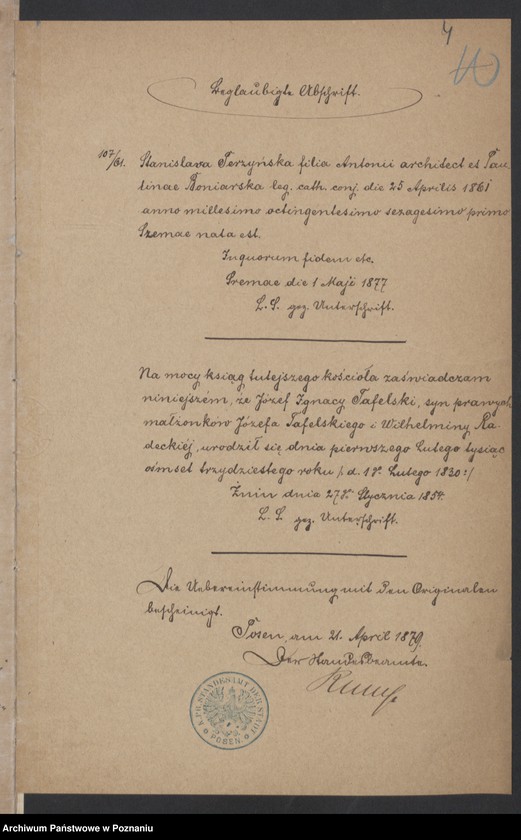 4
10
Beglaubigte Abschrift.
107/61. Stanislava Terzyńska filia Antonii architect et Pau-
linae Boniarska leg. cath. conj. die 25 Aprilis 1861
anno millesimo octingentesimo sezagesimo primo
Szemae nata est.
In quorum fidem etc.
Sremae die 1 Maji 1877
L. S. gez. Unterschrift.
Na mocy ksiąg tutejszego kościoła zaświadczam
niniejszém, że Józef Ignacy Tafelski, syn prawych
małżonków Józefa Tafelskiego i Wilhelminy Ra-
deckiéj, urodził się dnia pierwszego Lutego tysiąc
ośmset trzydziestego roku /: d. 1go Lutego 1830 :/
Żnin dnia 27go Stycznia 1854.
L. S. gez. Unterschrift.
Die Uebereinstimmung mit den Originalen
bescheinigt.
Posen, am 21. April 1879.
Der Standesbeamte.
K. PR. STANDESAMT DER STADT
POSEN
Archiwum Państwowe w Poznaniu